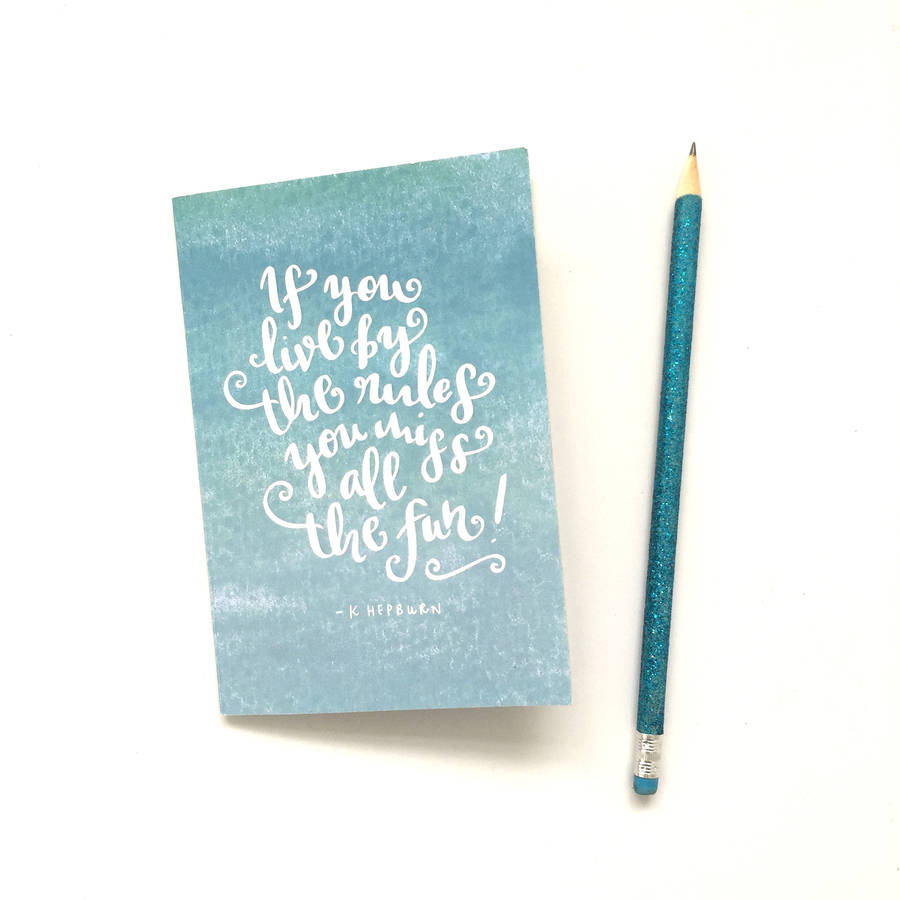 If you
live by
the rules
you miss
all
the fun!
- K HEPBURN